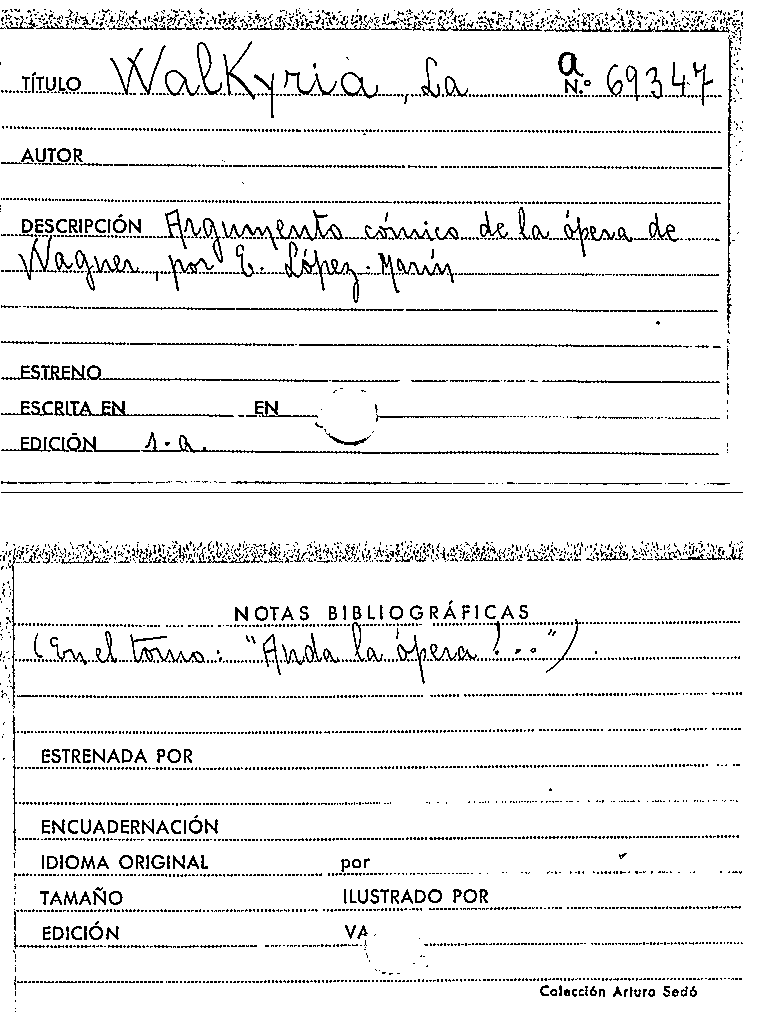 TÍTULO Walkyria, La a N.º 69347
AUTOR
DESCRIPCIÓN Argumento cómico de la ópera de
Wagner, por E. López-Marín
ESTRENO
ESCRITA EN EN
EDICIÓN s.a.
NOTAS BIBLIOGRÁFICAS
(En el tomo: "Anda la ópera!..").
ESTRENADA POR
ENCUADERNACIÓN
IDIOMA ORIGINAL por
TAMAÑO ILUSTRADO POR
EDICIÓN VA
Colección Arturo Sedó